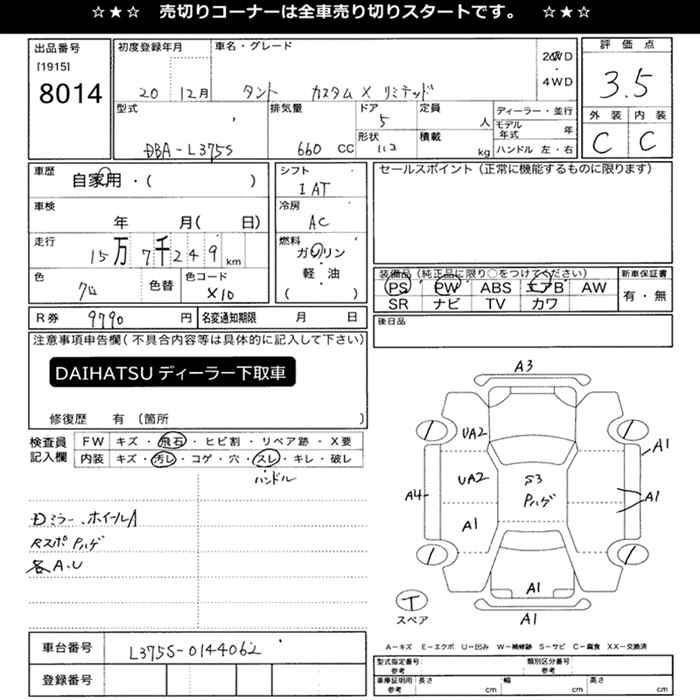 ☆★☆ 売切りコーナーは全車売り切りスタートです。 ☆★☆
出品番号
[1915]
8014
初度登録年月
20 12月
車名・グレード
タント カスタム X リミテッド
2WD
・
4WD
評価点
3.5
外装 内装
C C
型式
DBA-L375S
排気量
660 CC
ドア
5
形状
定員
人
積載
kg
ディーラー・並行
モデル年式 年
ハンドル 左・右
車歴
自家用・( )
車検
年 月( 日)
走行
15万7千249km
色
色替
色コード
X10
シフト
IAT
冷房
AC
燃料
ガソリン
軽・油
( )
セールスポイント(正常に機能するものに限ります)
装備品(純正品に限り○をつけてください)
PS PW ABS エアB AW
SR ナビ TV カワ
新車保証書
有・無
R券 9790 円
名変通知期限 月 日
後日品
注意事項申告欄(不具合内容等は具体的に記入して下さい)
DAIHATSU ディーラー下取車
修復歴 有(箇所 )
検査員記入欄
FW キズ・飛石・ヒビ割・リペア跡・X要
内装 キズ・汚レ・コゲ・穴・スレ・キレ・破レ
ハンドル
Dミラー、ホイールA
Rスポ Pハゲ
各A.U
A3
UA2
A1
UA2
S3
Pハゲ
A4
A1
A1
A1
A1
T
スペア
A-キズ E-エクボ U-凹み W-補修跡 S-サビ C-腐食 XX-交換済
車台番号 L375S-0144062
登録番号
型式指定番号:参考
類別区分番号:参考
車庫証明用参考
長さ cm
幅 cm
高さ cm